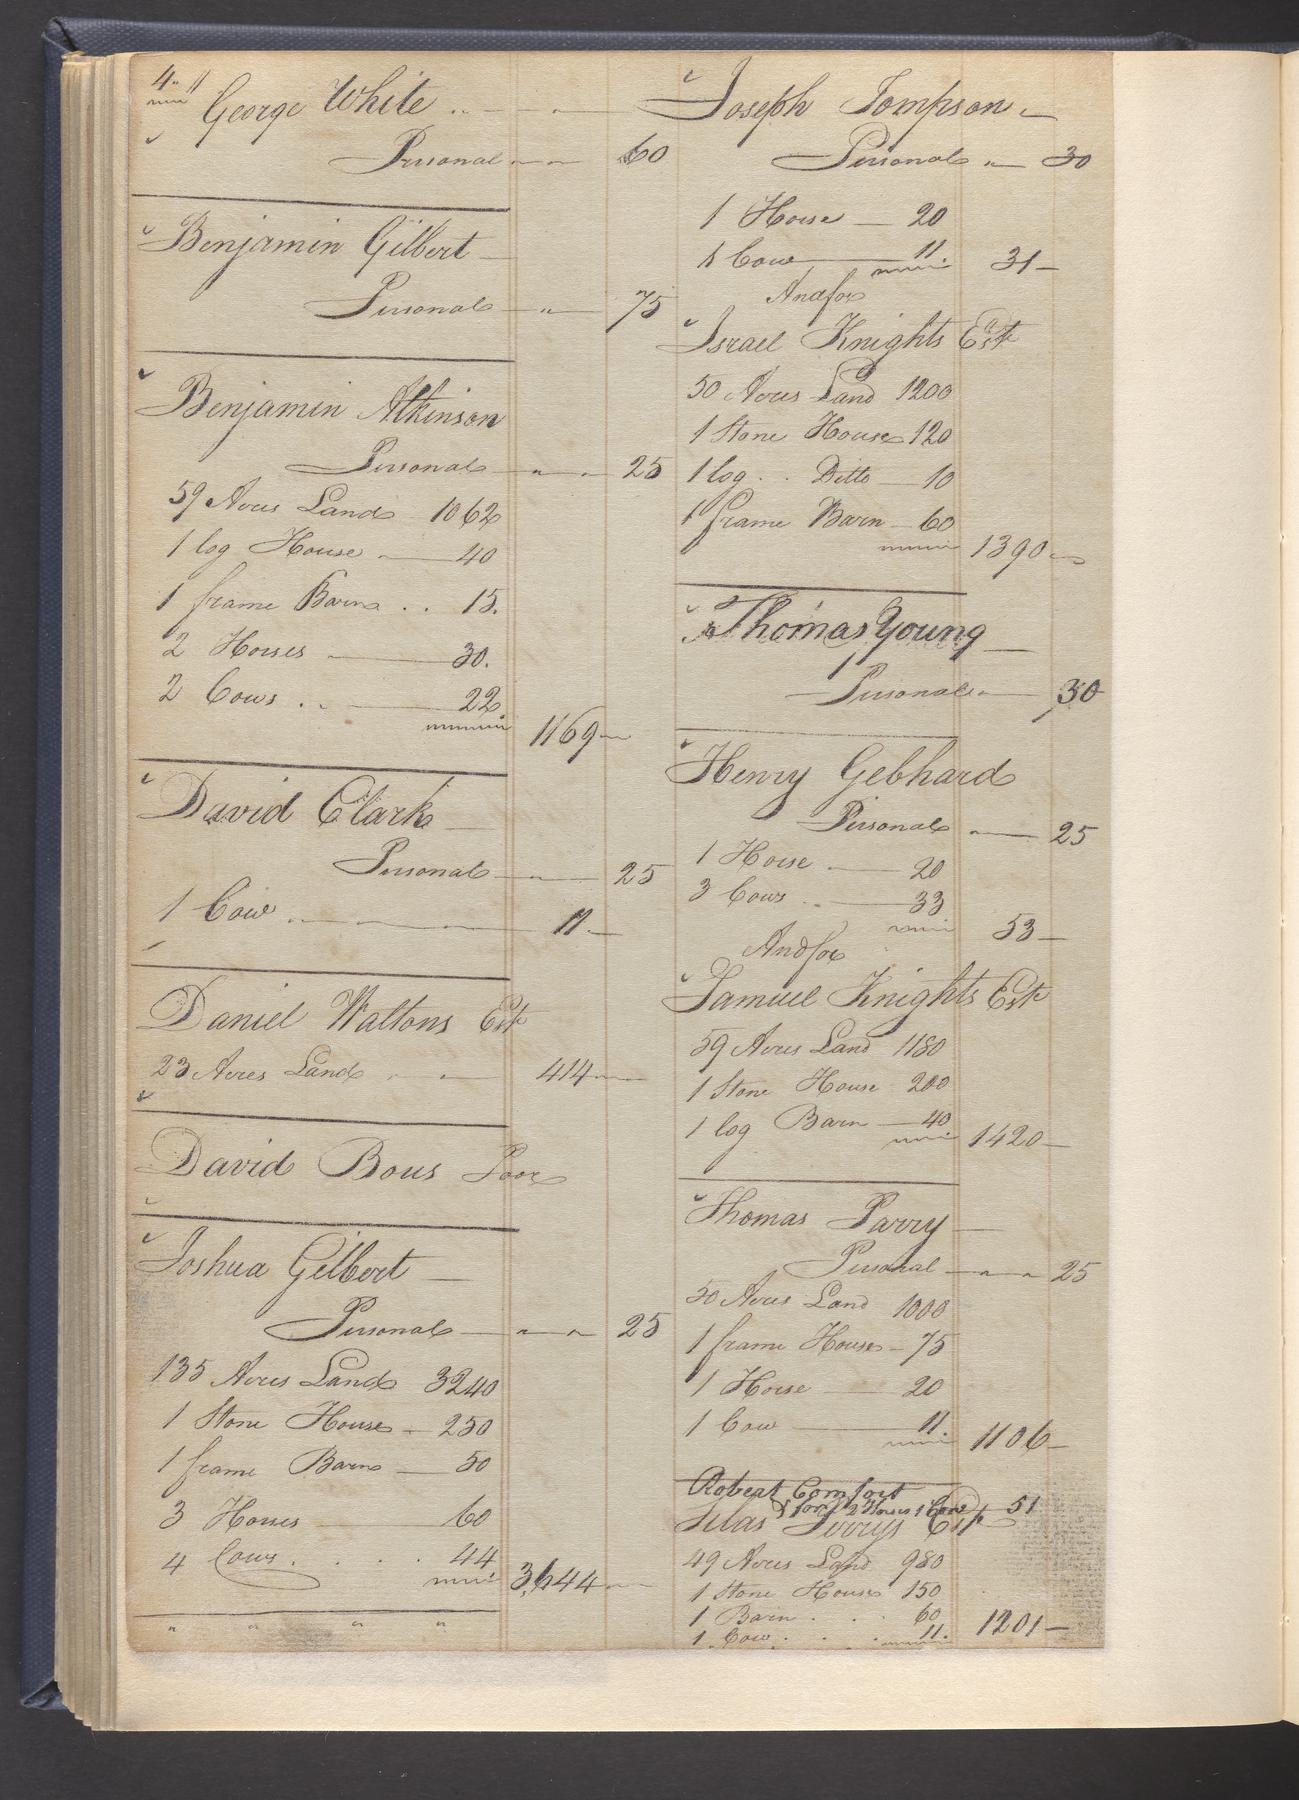 4"
George White
Personal 60
Benjamin Gilbert
Personal 75
Benjamin Atkinson
Personal 25
59 Acres Land 1062
1 log House 40
1 frame Barn 15.
2 Horses 30.
2 Cows 22
1169
David Clark
Personal 25
1 Cow 11
Daniel Waltons Est
23 Acres Land 414
David Bous Poor
Joshua Gilbert
Personal 25
135 Acres Land 3240
1 Stone House 250
1 frame Barn 50
3 Horses 60
4 Cows 44
3,644
" " " "
Joseph Tompson
Personal 30
1 Horse 20
1 Cow 11.
31
And for
Israel Knights Est
50 Acres Land 1200
1 Stone House 120
1 log Ditto 10
1 frame Barn 60
1390
Thomas Young
Personal 30
Henry Gebhard
Personal 25
1 Horse 20
3 Cows 33
53
And for
Samuel Knights Est
59 Acres Land 1180
1 Stone House 200
1 log Barn 40
1420
Thomas Parry
Personal 25
50 Acres Land 1000
1 frame House 75
1 Horse 20
1 Cow 11.
1106
Robert Comfort
& for 2 Horses 1 Cow 51
Silas Est
49 Acres Land 980
1 Stone House 150
1 Barn 60
1 Cow 11.
1201